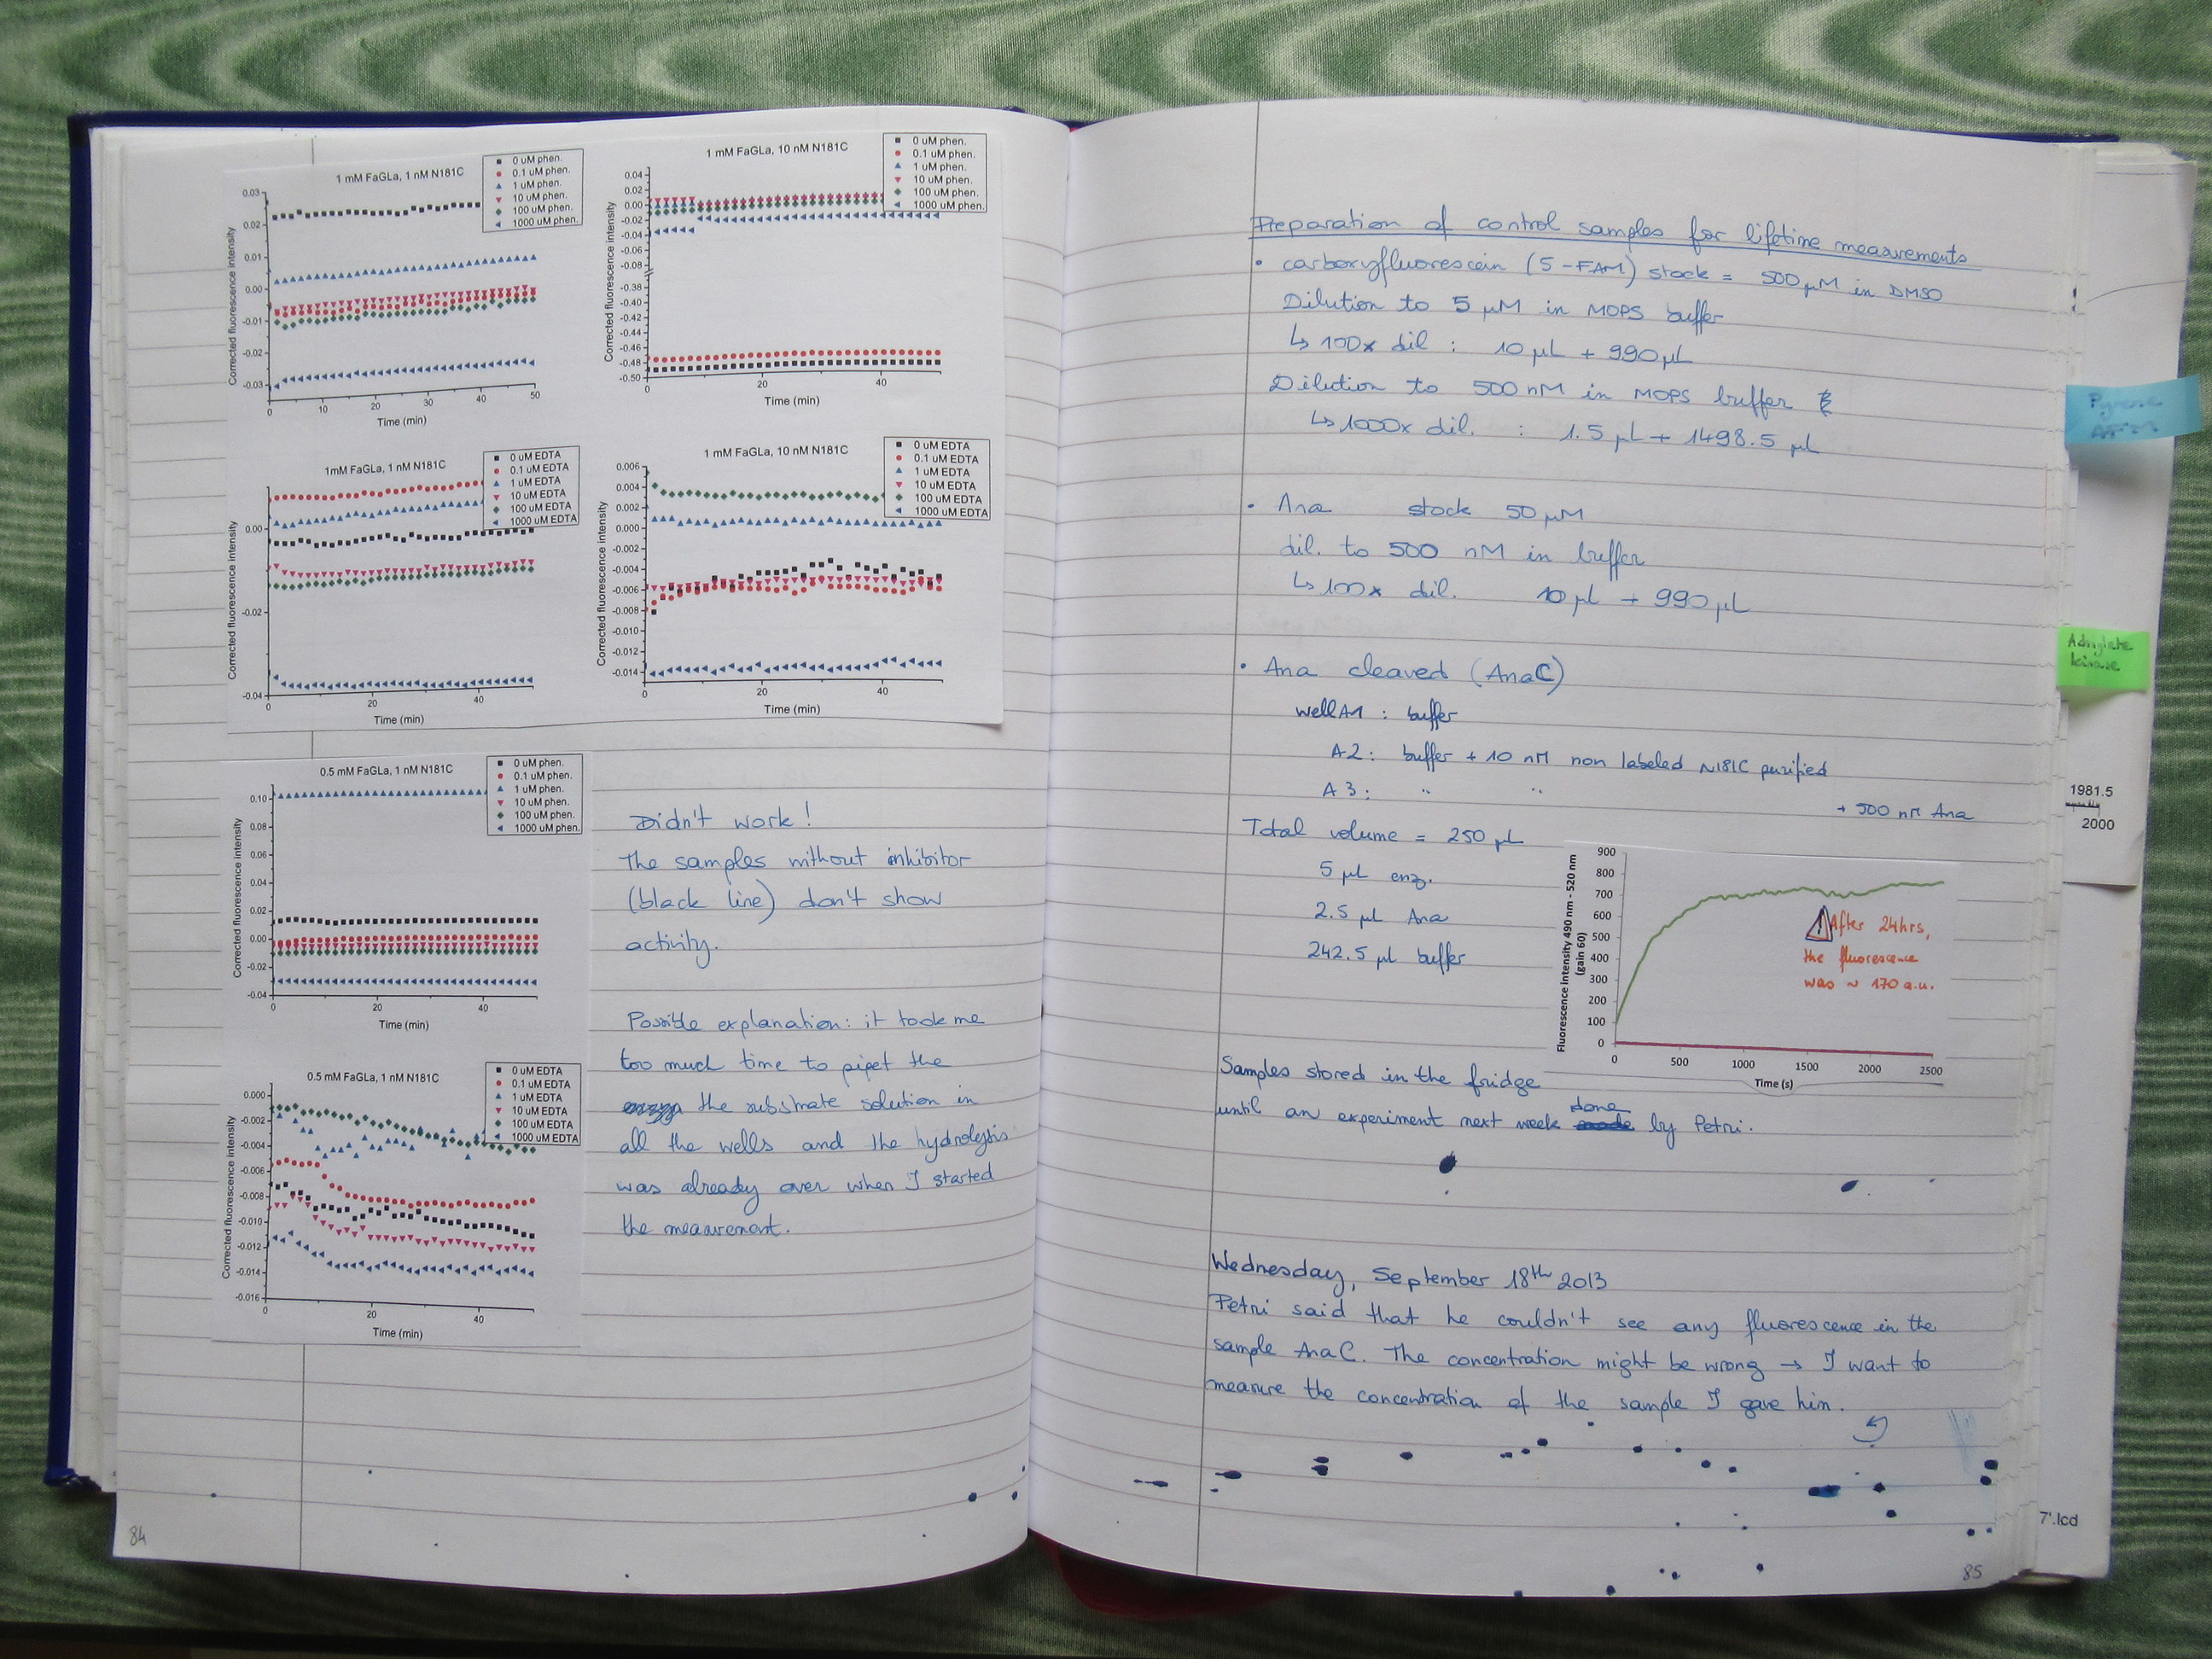 1 mM FaGLa, 1 nM N181C
0 uM phen.
0.1 uM phen.
1 uM phen.
10 uM phen.
100 uM phen.
1000 uM phen.
Corrected fluorescence intensity
0.03
0.02
0.01
0.00
-0.01
-0.02
-0.03
0 10 20 30 40 50
Time (min)
1 mM FaGLa, 10 nM N181C
0 uM phen.
0.1 uM phen.
1 uM phen.
10 uM phen.
100 uM phen.
1000 uM phen.
Corrected fluorescence intensity
0.04
0.02
0.00
-0.02
-0.04
-0.06
-0.08
-0.38
-0.40
-0.42
-0.44
-0.46
-0.48
-0.50
0 20 40
Time (min)
1mM FaGLa, 1 nM N181C
0 uM EDTA
0.1 uM EDTA
1 uM EDTA
10 uM EDTA
100 uM EDTA
1000 uM EDTA
Corrected fluorescence intensity
0.00
-0.02
-0.04
0 20 40
Time (min)
1 mM FaGLa, 10 nM N181C
0 uM EDTA
0.1 uM EDTA
1 uM EDTA
10 uM EDTA
100 uM EDTA
1000 uM EDTA
Corrected fluorescence intensity
0.006
0.004
0.002
0.000
-0.002
-0.004
-0.006
-0.008
-0.010
-0.012
-0.014
0 20 40
Time (min)
0.5 mM FaGLa, 1 nM N181C
0 uM phen.
0.1 uM phen.
1 uM phen.
10 uM phen.
100 uM phen.
1000 uM phen.
Corrected fluorescence intensity
0.10
0.08
0.06
0.04
0.02
0.00
-0.02
-0.04
0 20 40
Time (min)
0.5 mM FaGLa, 1 nM N181C
0 uM EDTA
0.1 uM EDTA
1 uM EDTA
10 uM EDTA
100 uM EDTA
1000 uM EDTA
Corrected fluorescence intensity
0.000
-0.002
-0.004
-0.006
-0.008
-0.010
-0.012
-0.014
-0.016
0 20 40
Time (min)
Didn't work!
The samples without inhibitor
(black line) don't show
activity.
Possible explanation: it took me
too much time to pipet the
the substrate solution in
all the wells and the hydrolysis
was already over when I started
the measurement.
84
Preparation of control samples for lifetime measurements
• carboxyfluorescein (5-FAM) stock = 500 µM in DMSO
Dilution to 5 µM in MOPS buffer
↳ 100x dil : 10 µL + 990 µL
Dilution to 500 nM in MOPS buffer
↳ 1000x dil. : 1.5 µL + 1498.5 µL
• Ana stock 50 µM
dil. to 500 nM in buffer
↳ 100x dil. 10 µL + 990 µL
• Ana cleaved (AnaC)
well A1 : buffer
A2 : buffer + 10 nM non labeled N181C purified
A3 : " " + 500 nM Ana
Total volume = 250 µL
5 µL enz.
2.5 µL Ana
242.5 µL buffer
Fluorescence intensity 490 nm - 520 nm
(gain 60)
900
800
700
600
500
400
300
200
100
0
0 500 1000 1500 2000 2500
Time (s)
After 24hrs,
the fluorescence
was ~ 170 a.u.
Samples stored in the fridge
until an experiment next week done by Petri.
Wednesday, September 18th 2013
Petri said that he couldn't see any fluorescence in the
sample AnaC. The concentration might be wrong → I want to
measure the concentration of the sample I gave him.
85
Pyrene
Adenylate
kinase
1981.5
2000
7'.lcd